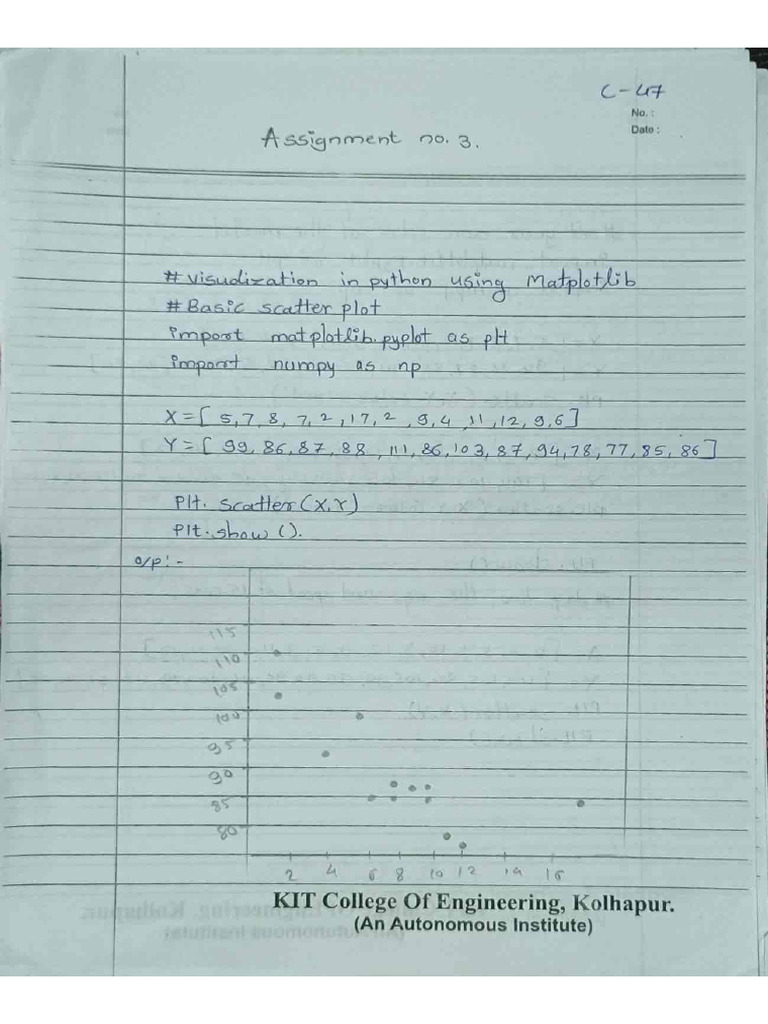 C-47
No. :
Date :
Assignment no. 3.
# visudization in python using Matplotlib
# Basic scatter plot
import matplotlib.pyplot as plt
import numpy as np
X=[5,7,8,7,2,17,2,9,4,11,12,9,6]
Y=[99,86,87,88,111,86,103,87,94,78,77,85,86]
Plt. scatter(X,Y)
Plt.show().
o/p:-
115
110
105
100
95
90
85
80
2 4 6 8 10 12 14 16
KIT College Of Engineering, Kolhapur.
(An Autonomous Institute)